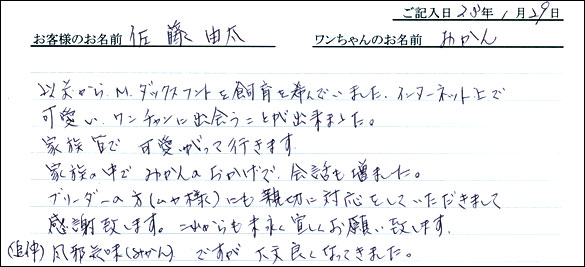 ご記入日 23年 1月29日
お客様のお名前 佐藤由太 ワンちゃんのお名前 みかん
以前から M.ダックスフントを飼育を希んでいました。インターネット上で
可愛い ワンチャンに出会うことが出来ました。
家族皆で 可愛いがって行きます
家族の中で みかんのおかげで、会話も増ました。
ブリーダーの方(ムヤ様)にも親切に対応をしていただきまして
感謝致します。これからも末永く宜しくお願い致します。
(追伸) 風邪気味(みかん) ですが 大丈良くなってきました。